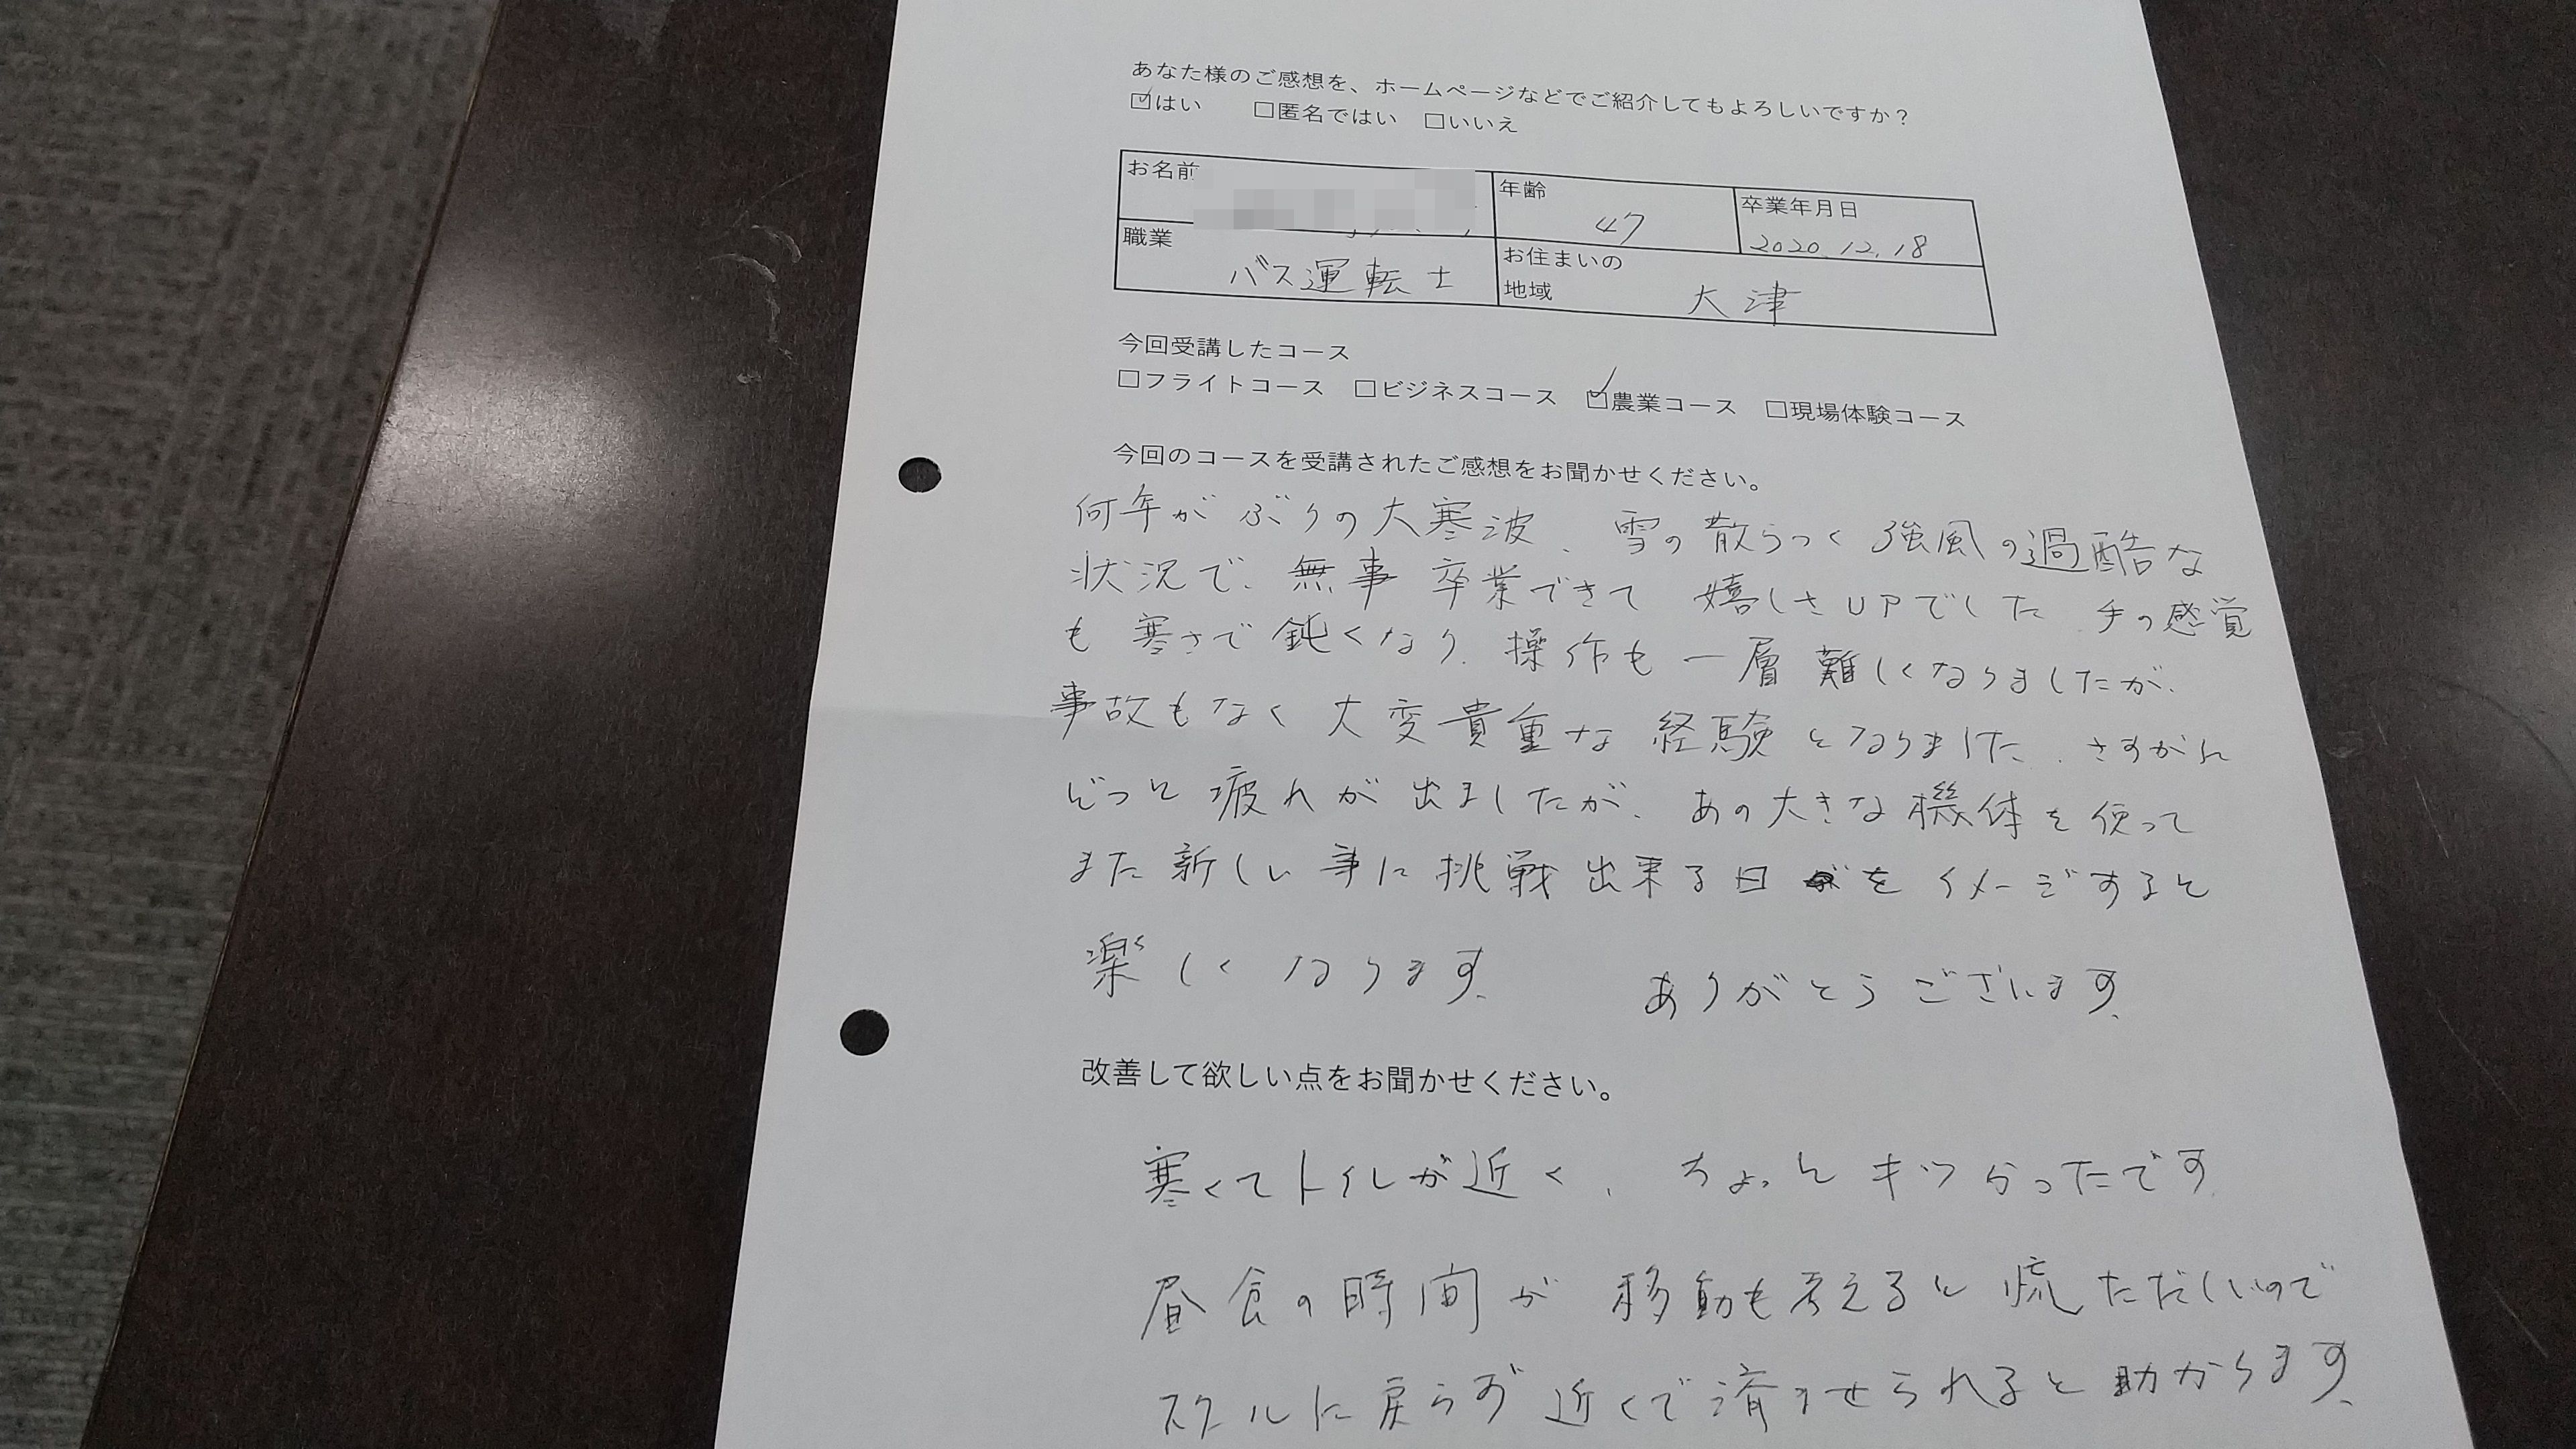 あなた様のご感想を、ホームページなどでご紹介してもよろしいですか?
☑はい □匿名ではい □いいえ
お名前
年齢 47
卒業年月日 2020.12.18
職業 バス運転士
お住まいの地域 大津
今回受講したコース
□フライトコース □ビジネスコース ☑農業コース □現場体験コース
今回のコースを受講されたご感想をお聞かせください。
何年がぶりの大寒波、雪の散らつく強風の過酷な
状況で、無事卒業できて嬉しさUPでした 手の感覚
も寒さで鈍くなり、操作も一層難しくなりましたが、
事故もなく大変貴重な経験となりました、さすがに
どっと疲れが出ましたが、あの大きな機体を使って
また新しい事に挑戦出来る日をイメージすると
楽しくなります、 ありがとうございます、
改善して欲しい点をお聞かせください。
寒くてトイレが近く、ちょっとキツかったです
昼食の時間が移動も考えると慌ただしいので
スクールに戻らず近くで済ませられると助かります、